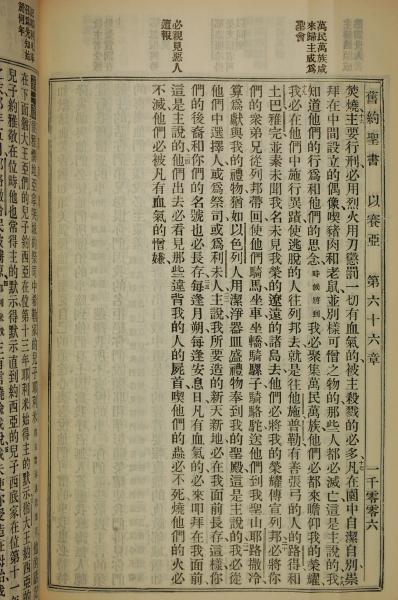 萬民萬族咸
來歸主成爲
聖會
必親見惡人
遭報
舊約聖書　以賽亞　第六十六章　一千零零六
焚燒主要行刑必用烈火用刀懲罰一切有血氣的被主殺戮的必多凡在園中自潔自別崇
拜在中間設立的偶像喫豬肉和老鼠並別樣可憎之物的那些人都必滅亡這是主說的我
知道他們的行爲和他們的思念時候將到我必聚集萬民萬族他們都來瞻仰我的榮耀
我必在他們中施行異蹟使逃脫的人往列邦去就是往他施普勒有善張弓的人的路得和
土巴雅完並素未聞我名未見我榮的遼遠的諸島去他們必將我的榮耀傳宣列邦必將你
們的衆弟兄從列邦帶回使他們騎馬坐車坐轎騎騾子騎駱駝送他們到我聖山耶路撒冷
算爲獻與我的禮物猶如以色列人用潔淨器皿盛禮物奉到我的聖殿這是主說的我必從
他們中選擇人或爲祭司或爲利未人主說我所要造的新天新地必在我面前長存這樣你
們的後裔和你們的名號也必長存每逢月朔每逢安息日凡有血氣的必來叩拜在我面前
這是主說的他們出去必看見那些違背我的人的屍首喫他們的蟲必不死燒他們的火必
不滅他們必被凡有血氣的憎嫌
在下面猶大王亞們的兒子約西亞在位第十三年耶利米始得主的默示猶大王約西亞的
兒子約雅敬在位時他也常得主的默示得默示直到約西亞的兒子西底家在位第十一